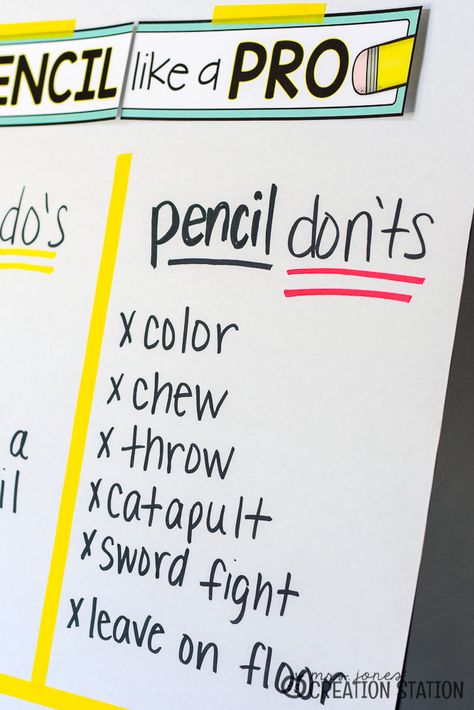 ENCIL like a PRO
do's
a
il
pencil don'ts
x color
x chew
x throw
x catapult
x sword fight
x leave on floor
mrs. jones
CREATION STATION